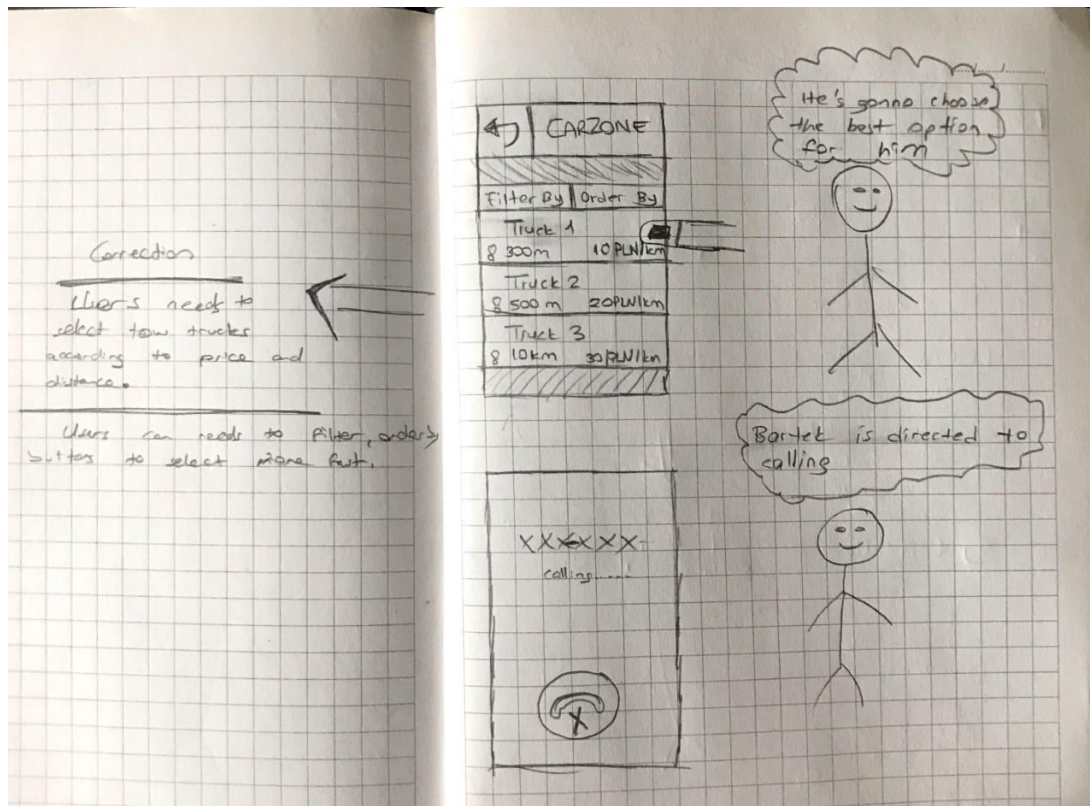 Correction
Users needs to
select tow trucks
according to price and
distance.
Users can needs to filter, order by
button to select more fast.
CARZONE
Filter By Order By
Truck 1
300m 10 PLN/km
Truck 2
500 m 20PLN/km
Truck 3
10km 30PLN/km
He's gonna choose
the best option
for him
Bartek is directed to
calling
XXXXXX
calling......